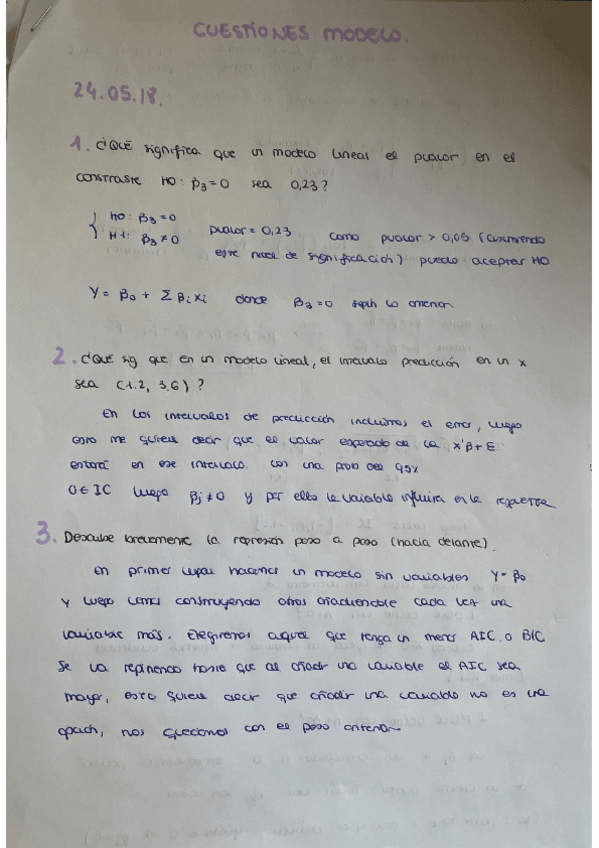 CUESTIONES MODELO.
24.05.18.
1. ¿Qué significa que un modelo lineal el pvalor en el
constraste H0: β3=0 sea 0,23?
H0: β3=0
H1: β3≠0
pvalor = 0,23 como pvalor > 0,05 (asumiendo
este nivel de significación) puedo aceptar H0
Y = β0 + Σ βi xi donde β3=0 según lo anterior
2. ¿Qué sig que en un modelo lineal, el intervalo predicción en un x
sea (1.2, 3,6)?
En los intervalos de predicción incluimos el error, luego
esto me quiere decir que el valor esperado de la x'β+ε
estará en ese intervalo. con una prob del 95%
0∈ IC luego βj≠0 y por ello la variable influirá en la respuesta.
3. Describe brevemente la regresión paso a paso (hacia delante).
En primer lugar hacemos un modelo sin variables Y=β0
y luego vamos construyendo otros añadiéndole cada vez una
variable más. Elegiremos aquel que tenga un menor AIC o BIC
Se va repitiendo hasta que al añadir una variable el AIC sea
mayor, esto quiere decir que añadir una variable no es una
opción, nos quedamos con el paso anterior